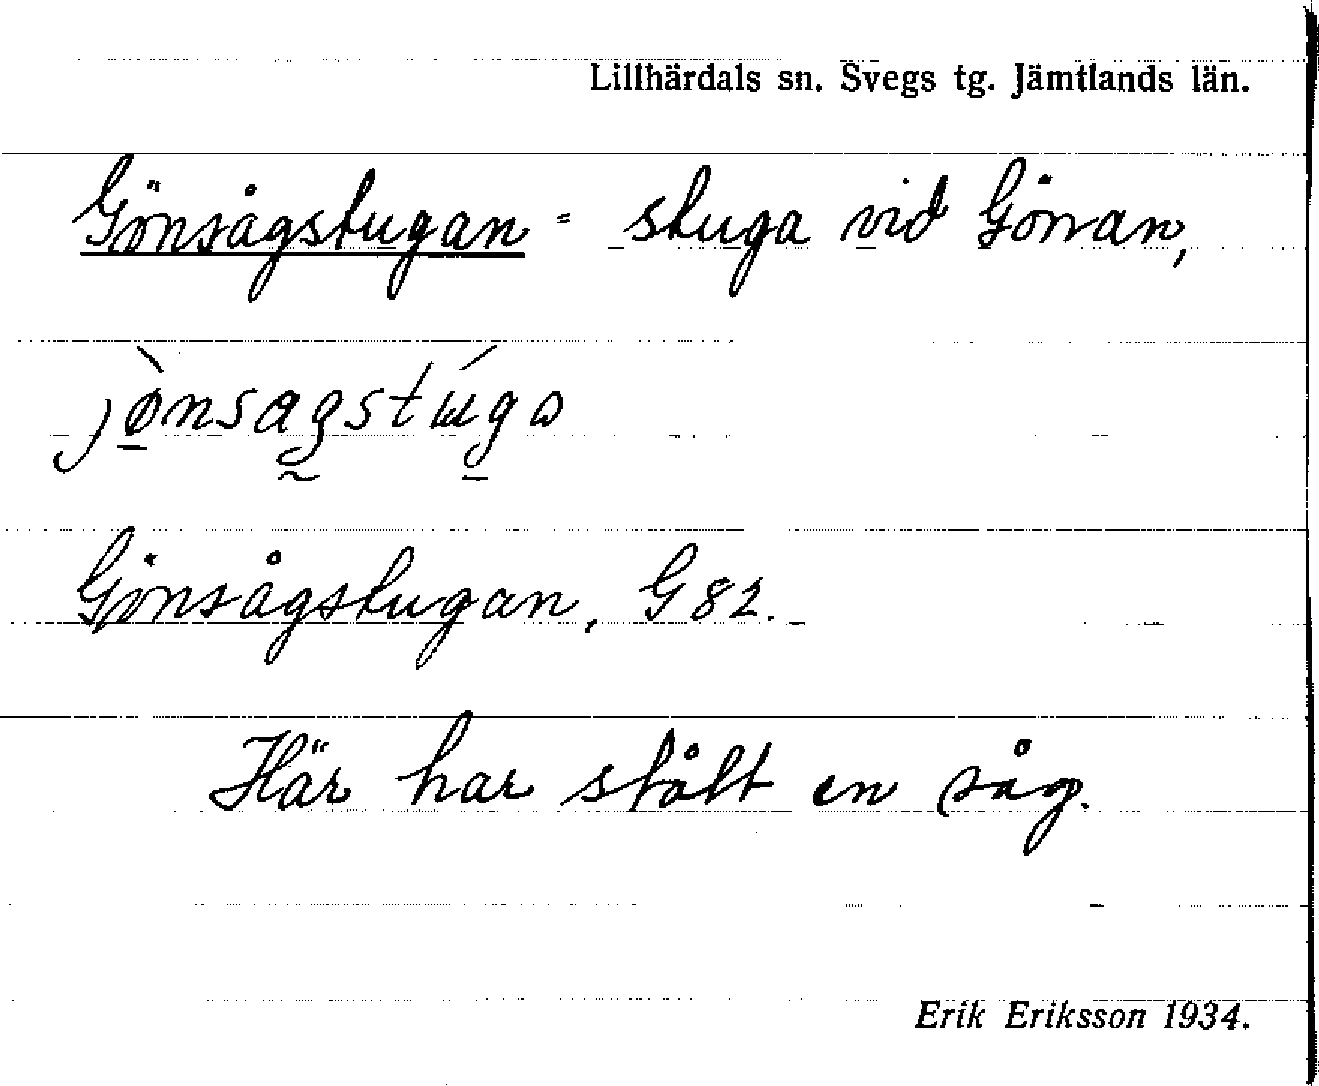 Lillhärdals sn. Svegs tg. Jämtlands län.
Gönsågstugan = stuga vid Gönan,
Gönsågstugan, G 82.
Här har stått en såg.
Erik Eriksson 1934.